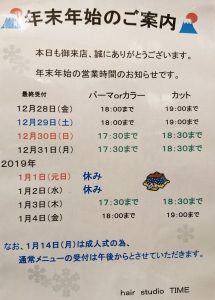 年末年始のご案内
本日も御来店、誠にありがとうございます。
年末年始の営業時間のお知らせです。
最終受付 パーマorカラー カット
12月28日(金) 18:00まで 19:00まで
12月29日(土) 18:00まで 19:00まで
12月30日(日) 17:30まで 18:30まで
12月31日(月) 17:30まで 18:30まで
2019年
1月1日(元日) 休み
1月2日(水) 休み
1月3日(木) 17:30まで 18:30まで
1月4日(金) 18:00まで 19:00まで
なお、1月14日(月)は成人式の為、
通常メニューの受付は午後からとさせていただきます。
hair studio TIME